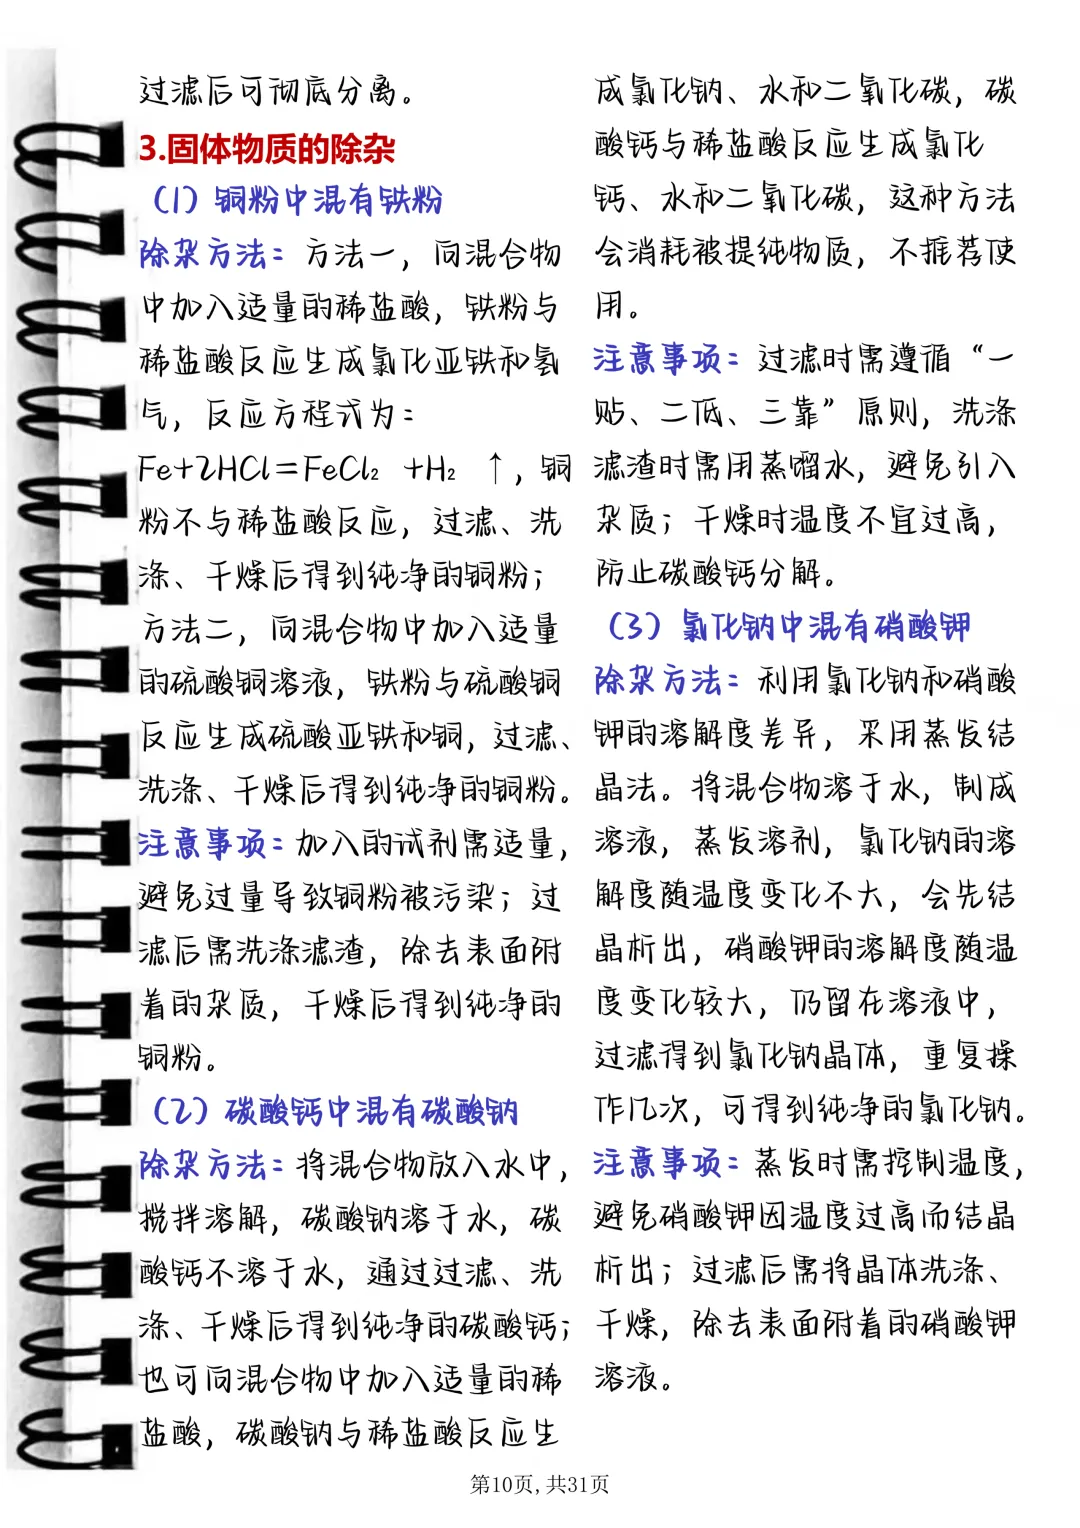 过滤后可彻底分离。
3.固体物质的除杂
（1）铜粉中混有铁粉
除杂方法：方法一，向混合物
中加入适量的稀盐酸，铁粉与
稀盐酸反应生成氯化亚铁和氢
气，反应方程式为：
Fe+2HCl=FeCl₂ +H₂ ↑，铜
粉不与稀盐酸反应，过滤、洗
涤、干燥后得到纯净的铜粉；
方法二，向混合物中加入适量
的硫酸铜溶液，铁粉与硫酸铜
反应生成硫酸亚铁和铜，过滤、
洗涤、干燥后得到纯净的铜粉。
注意事项：加入的试剂需适量，
避免过量导致铜粉被污染；过
滤后需洗涤滤渣，除去表面附
着的杂质，干燥后得到纯净的
铜粉。
（2）碳酸钙中混有碳酸钠
除杂方法：将混合物放入水中，
搅拌溶解，碳酸钠溶于水，碳
酸钙不溶于水，通过过滤、洗
涤、干燥后得到纯净的碳酸钙；
也可向混合物中加入适量的稀
盐酸，碳酸钠与稀盐酸反应生
成氯化钠、水和二氧化碳，碳
酸钙与稀盐酸反应生成氯化
钙、水和二氧化碳，这种方法
会消耗被提纯物质，不推荐使
用。
注意事项：过滤时需遵循“一
贴、二低、三靠”原则，洗涤
滤渣时需用蒸馏水，避免引入
杂质；干燥时温度不宜过高，
防止碳酸钙分解。
（3）氯化钠中混有硝酸钾
除杂方法：利用氯化钠和硝酸
钾的溶解度差异，采用蒸发结
晶法。将混合物溶于水，制成
溶液，蒸发溶剂，氯化钠的溶
解度随温度变化不大，会先结
晶析出，硝酸钾的溶解度随温
度变化较大，仍留在溶液中，
过滤得到氯化钠晶体，重复操
作几次，可得到纯净的氯化钠。
注意事项：蒸发时需控制温度，
避免硝酸钾因温度过高而结晶
析出；过滤后需将晶体洗涤、
干燥，除去表面附着的硝酸钾
溶液。
第10页,共31页